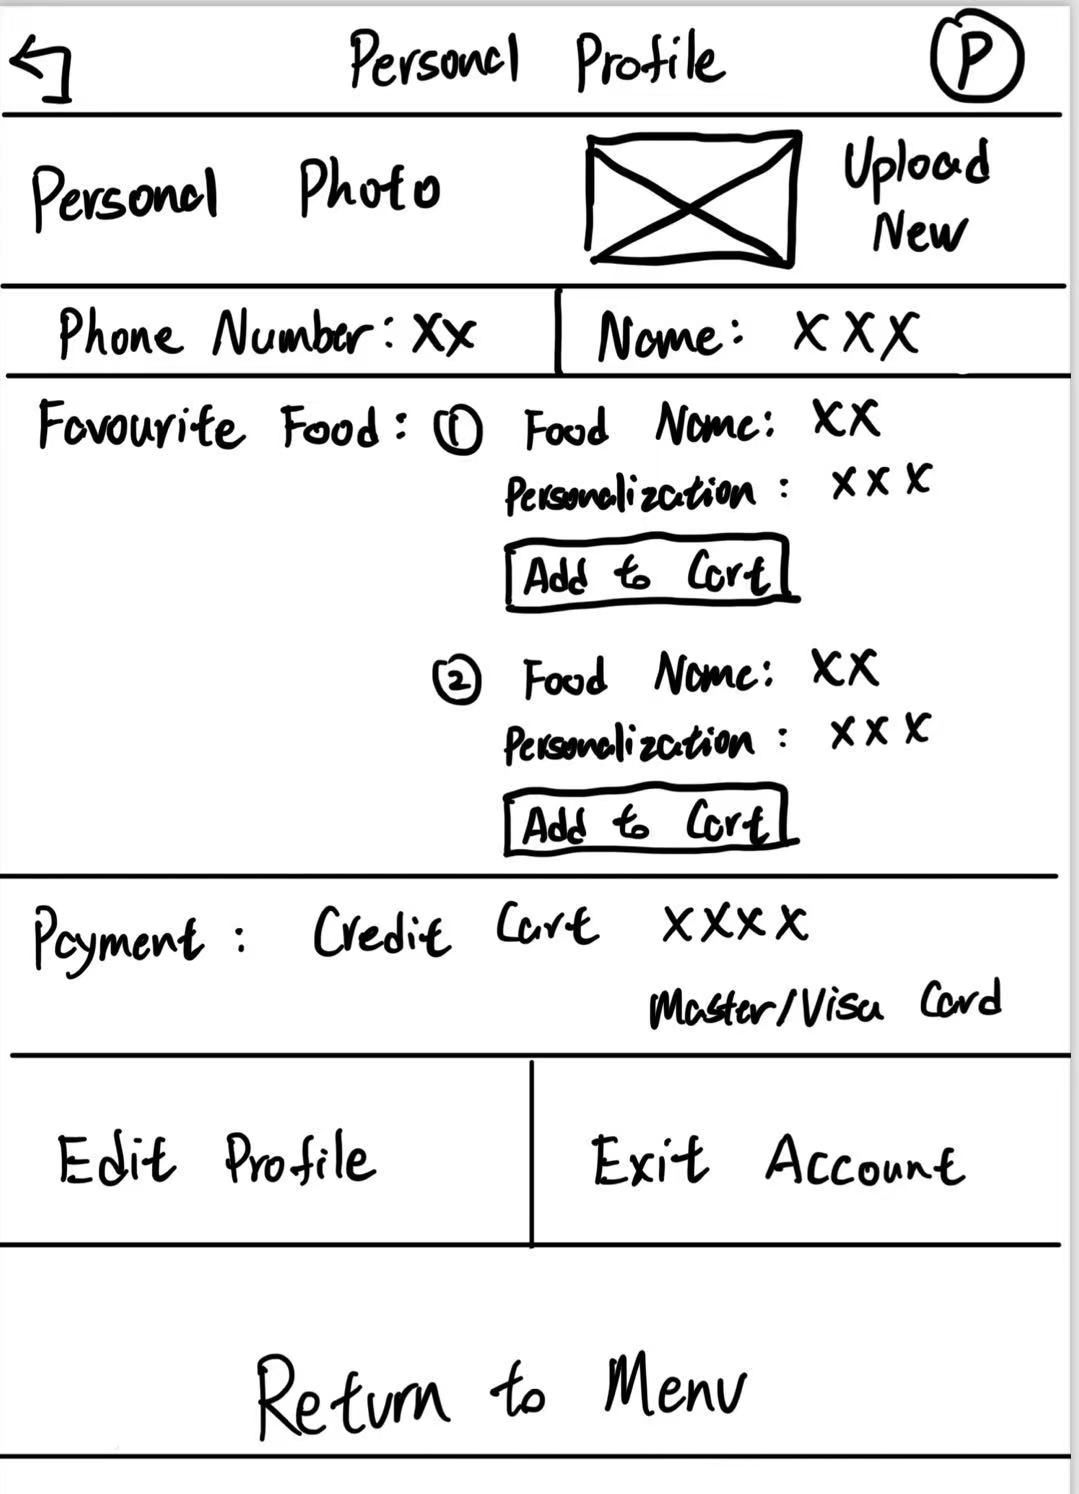 Personal Profile P
Personal Photo Upload
New
Phone Number: XX Name: XXX
Favourite Food: ① Food Name: XX
Personalization: XXX
Add to Cart
② Food Name: XX
Personalization: XXX
Add to Cart
Payment: Credit Cart XXXX
Master/Visa Card
Edit Profile Exit Account
Return to Menu